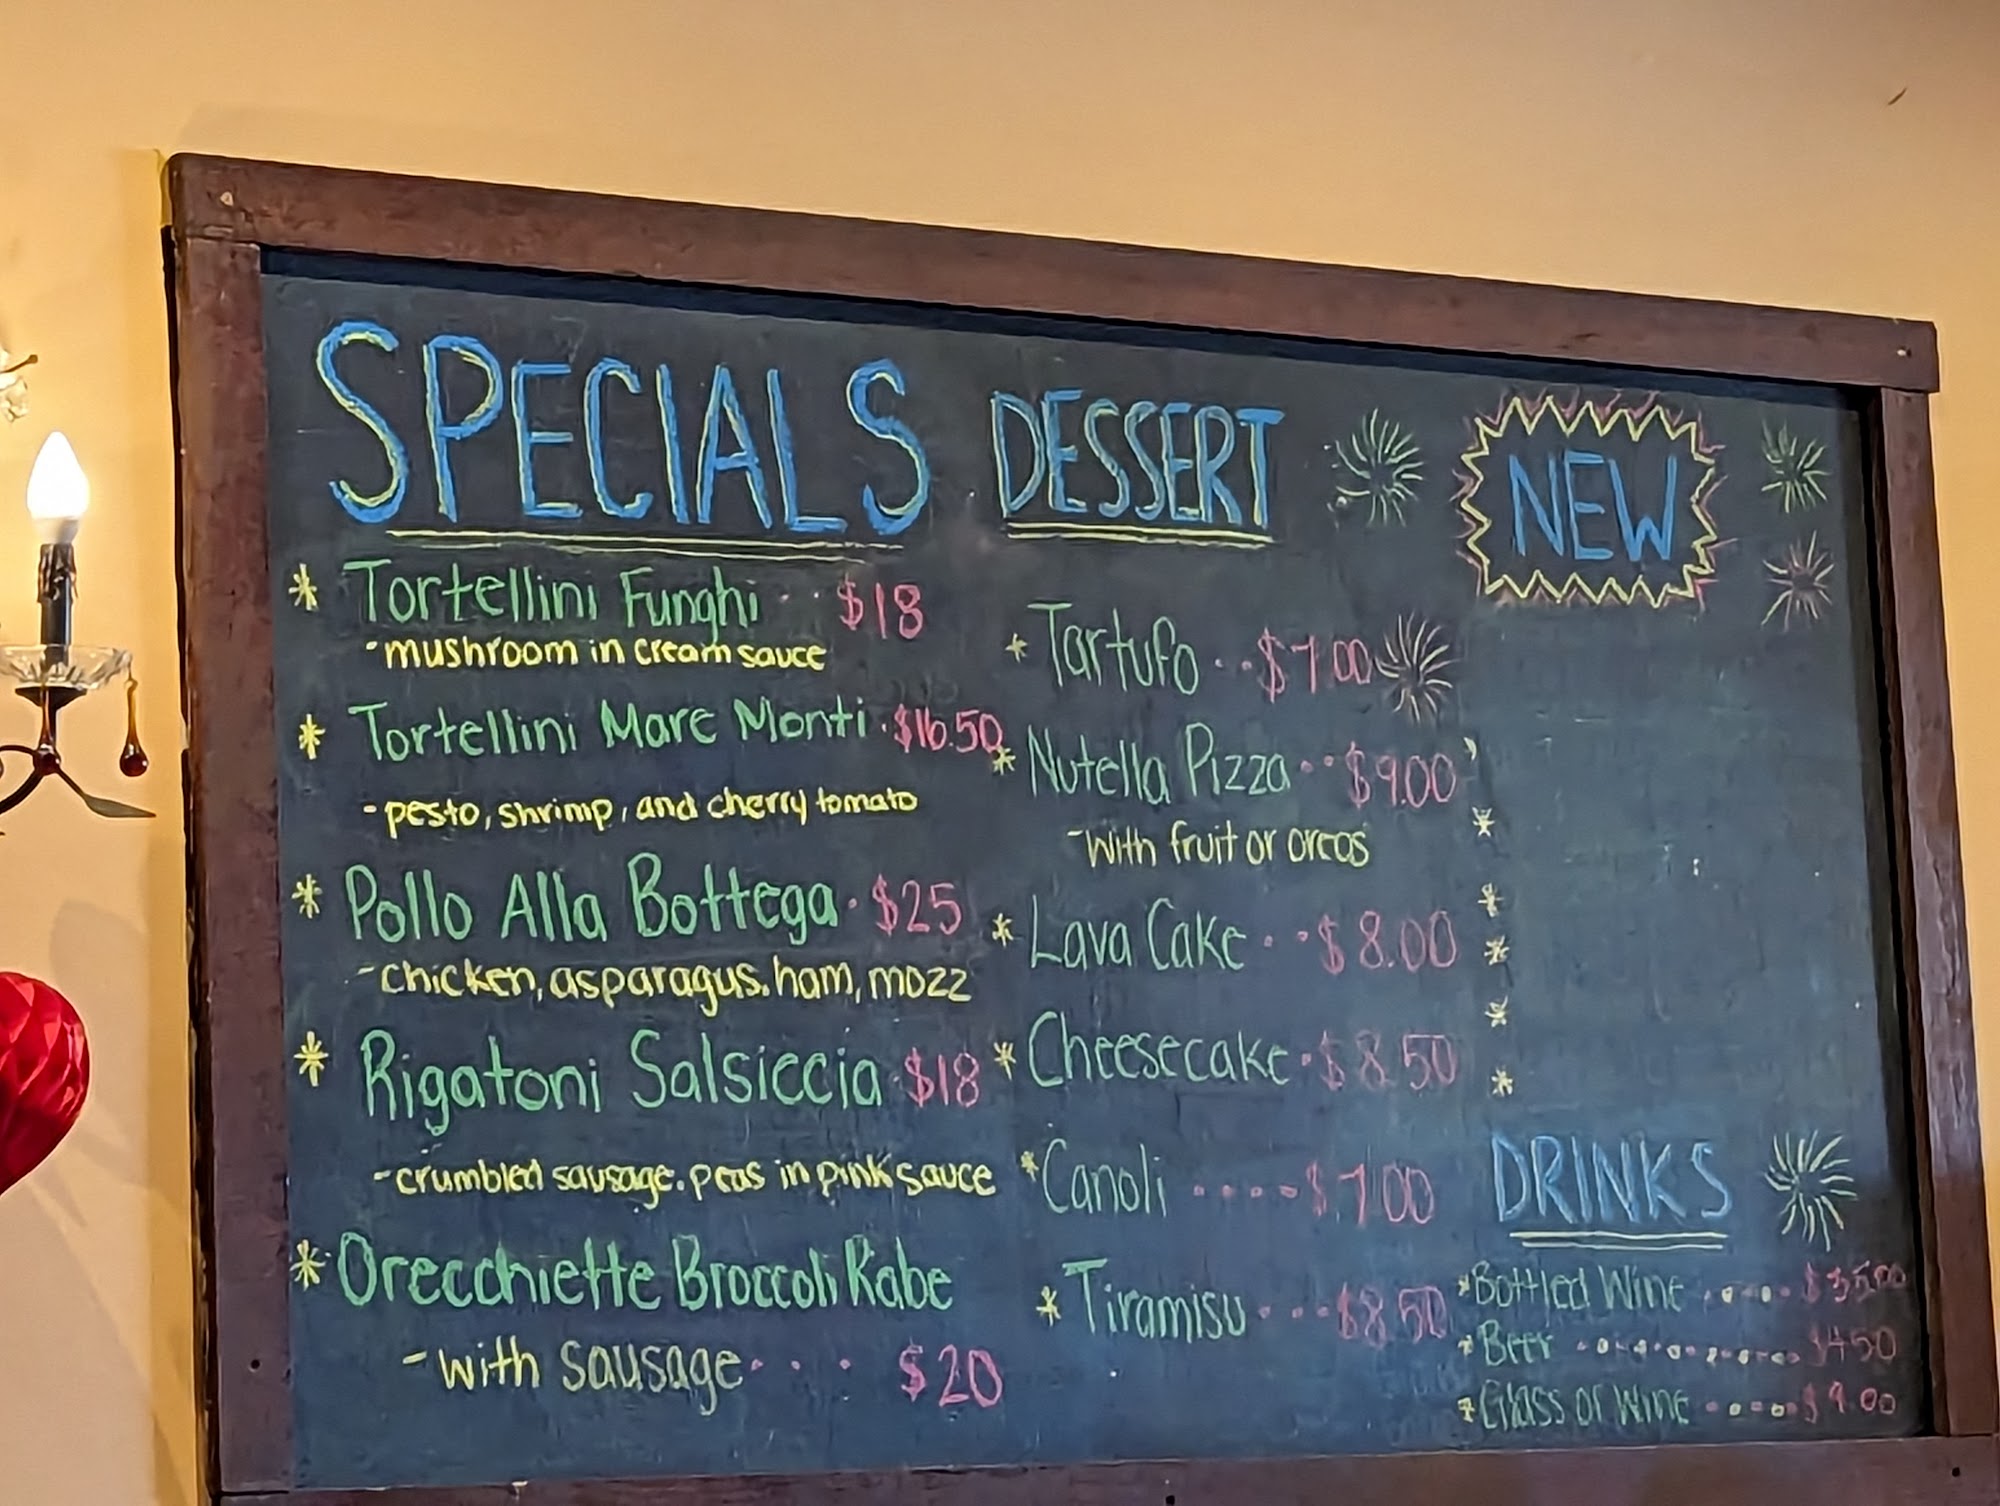 SPECIALS
* Tortellini Funghi .. $18
-mushroom in cream sauce
* Tortellini Mare Monti . $16.50
-pesto, shrimp, and cherry tomato
* Pollo Alla Bottega . $25
-chicken, asparagus, ham, mozz
* Rigatoni Salsiccia . $18
-crumbled sausage, peas in pink sauce
* Orecchiette Broccoli Rabe
-with sausage . . . $20
DESSERT
* Tartufo ... $7.00
* Nutella Pizza ... $9.00
-with fruit or oreos
* Lava Cake ... $8.00
* Cheesecake . $8.50
* Canoli ..... $7.00
* Tiramisu .... $8.50
NEW
DRINKS
* Bottled Wine ..... $35.00
* Beer ........... $4.50
* Glass of Wine ..... $9.00